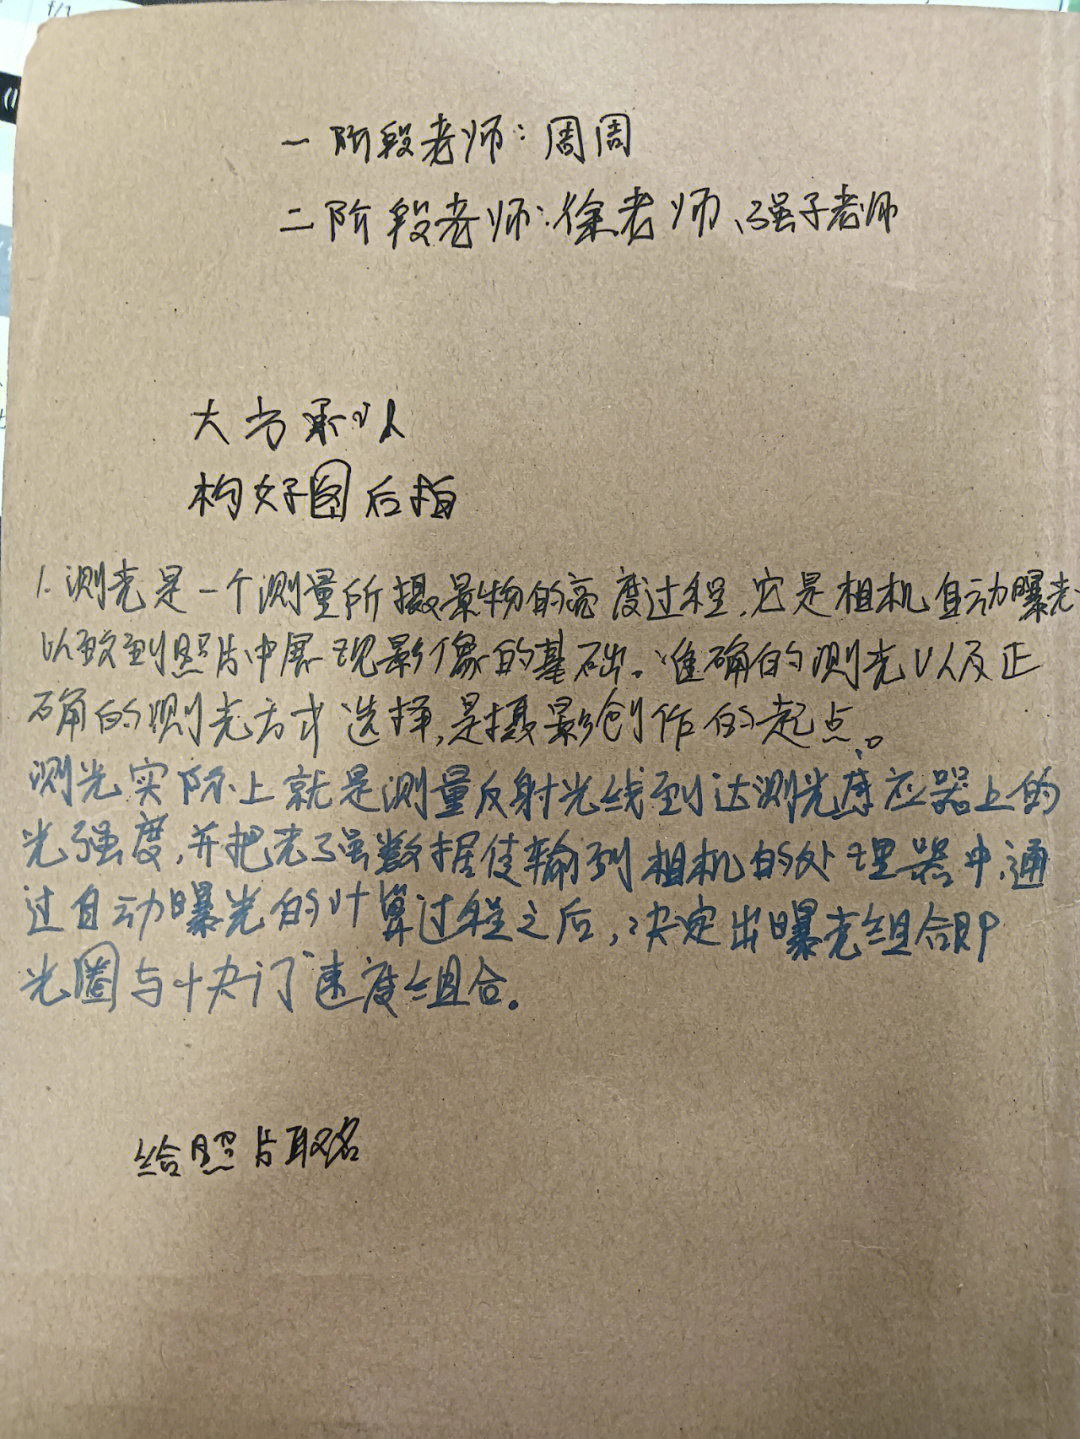 一阶段老师:周周
二阶段老师:徐老师、强子老师
大方承认
构好图后拍
1.测光是一个测量所摄景物的亮度过程,它是相机自动曝光
以致到照片中展现影像的基础。准确的测光以及正
确的测光方式选择,是摄影创作的起点。
测光实际上就是测量反射光线到达测光感应器上的
光强度,并把光强数据传输到相机的处理器中,通
过自动曝光的计算过程之后,决定出曝光组合即
光圈与快门速度组合。
给照片取名